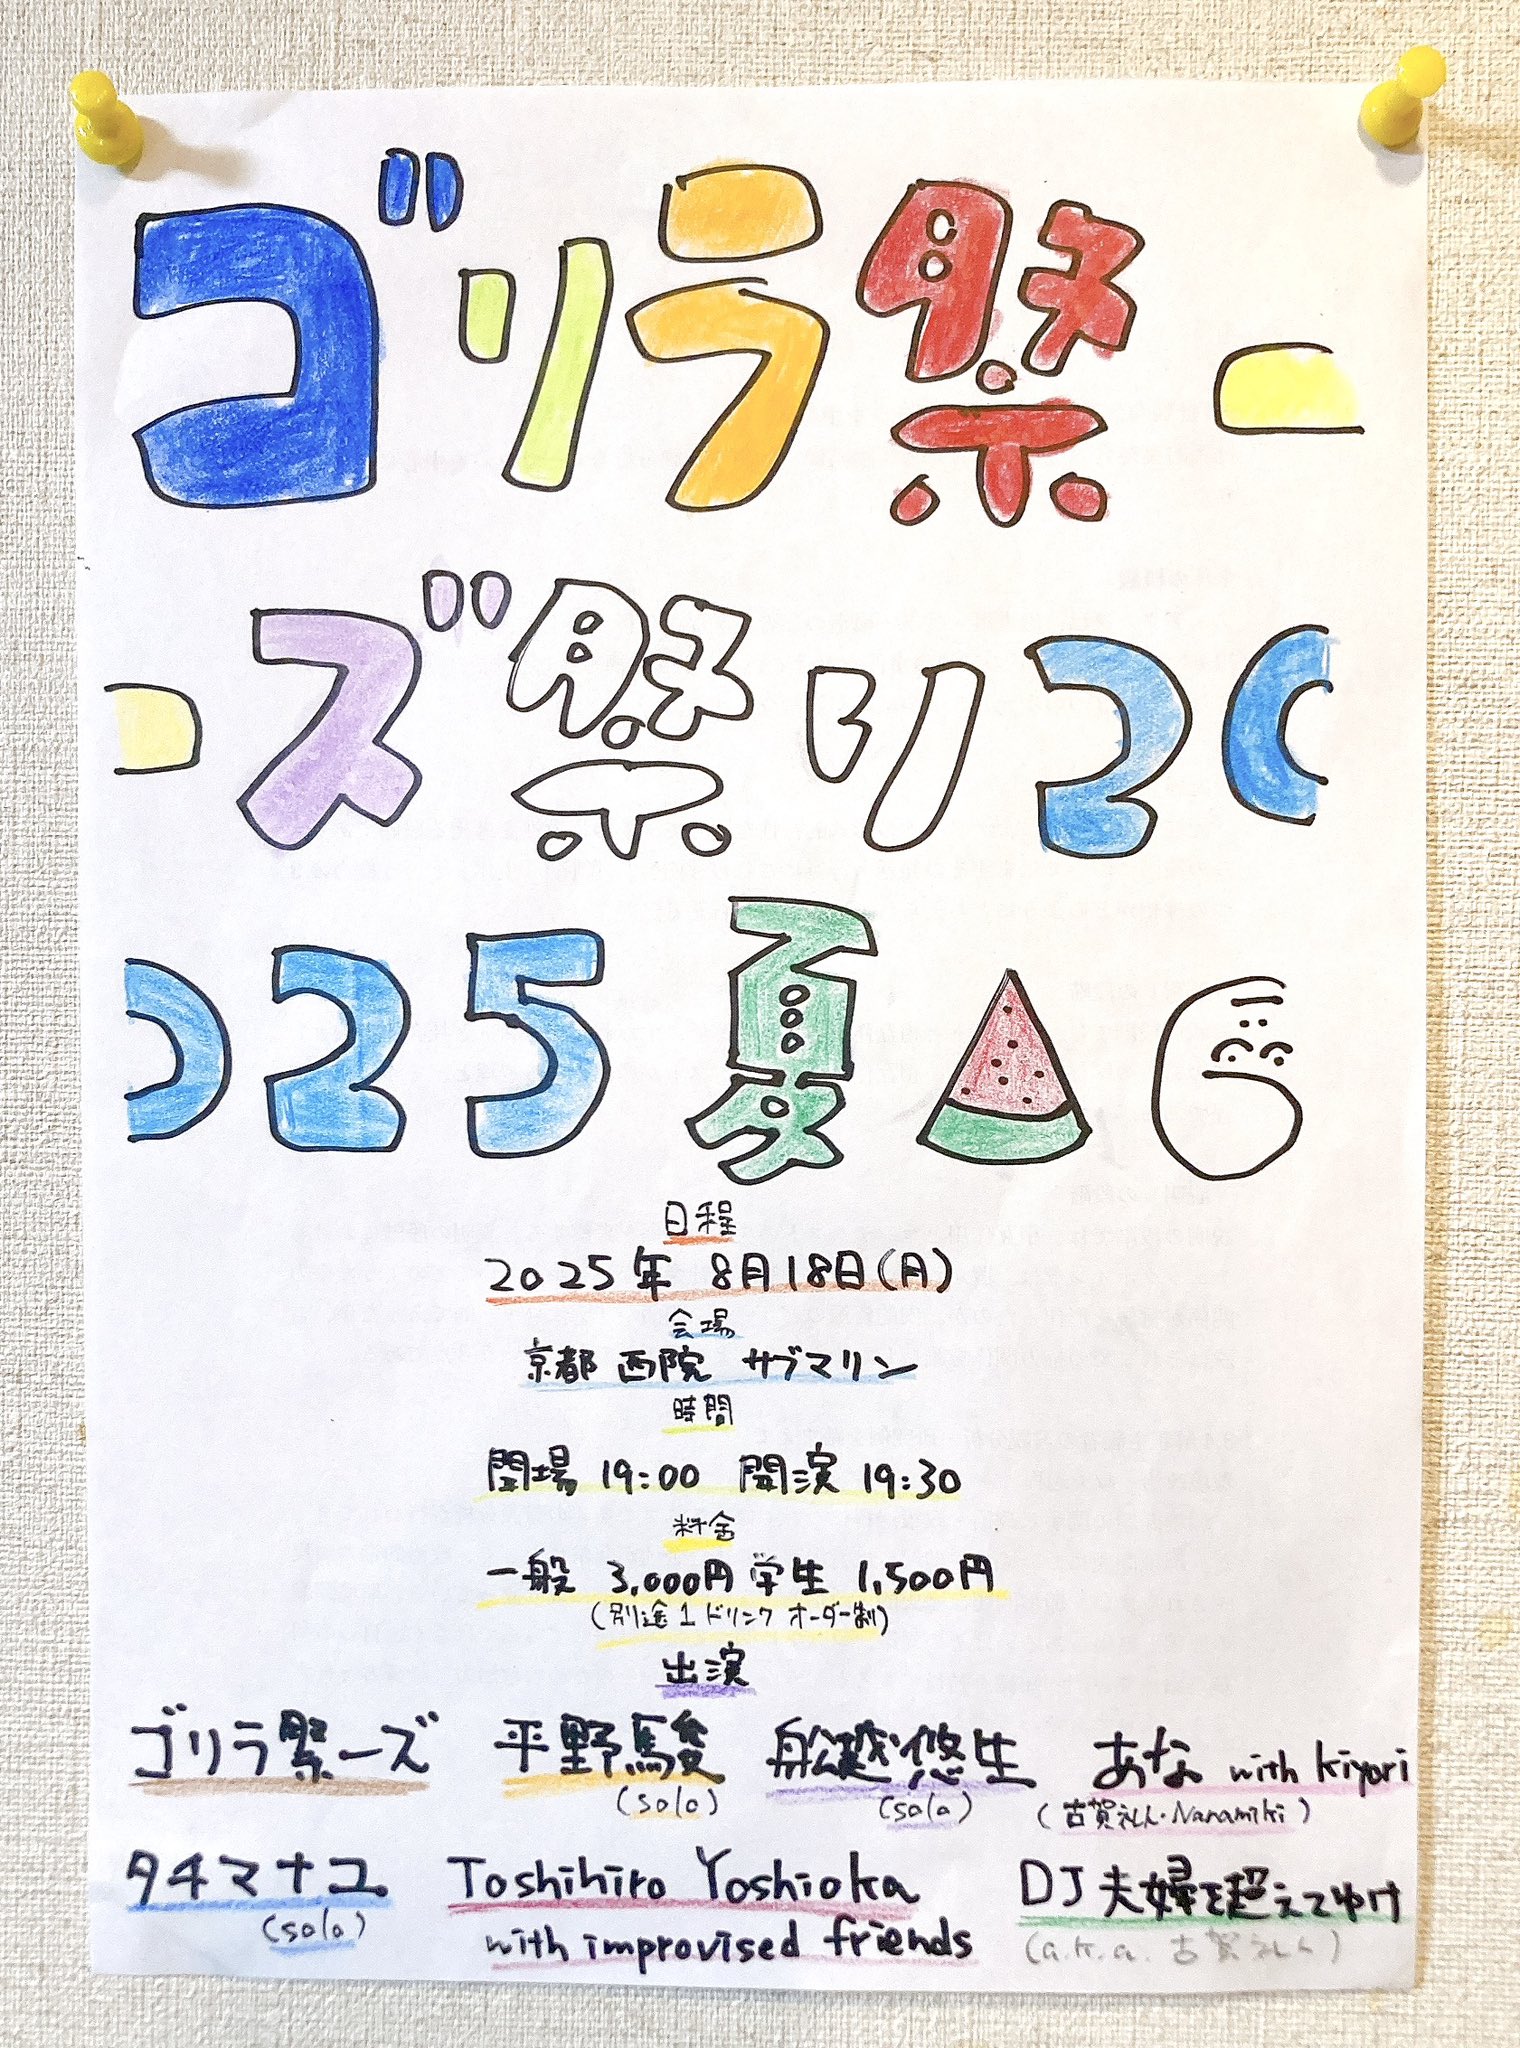 ゴリラ祭ー
ーズ祭り20
025夏
日程
2025年 8月18日(月)
会場
京都 西院 サブマリン
時間
開場 19:00 開演 19:30
料金
一般 3,000円 学生 1,500円
(別途1ドリンクオーダー制)
出演
ゴリラ祭ーズ 平野駿 船越悠生 あな with kiyori
(solo) (solo) (古賀礼人・Nanamiki)
タチマナユ Toshihiro Yoshioka DJ夫婦を超えてゆけ
(solo) with improvised friends (a.k.a. 古賀礼人)